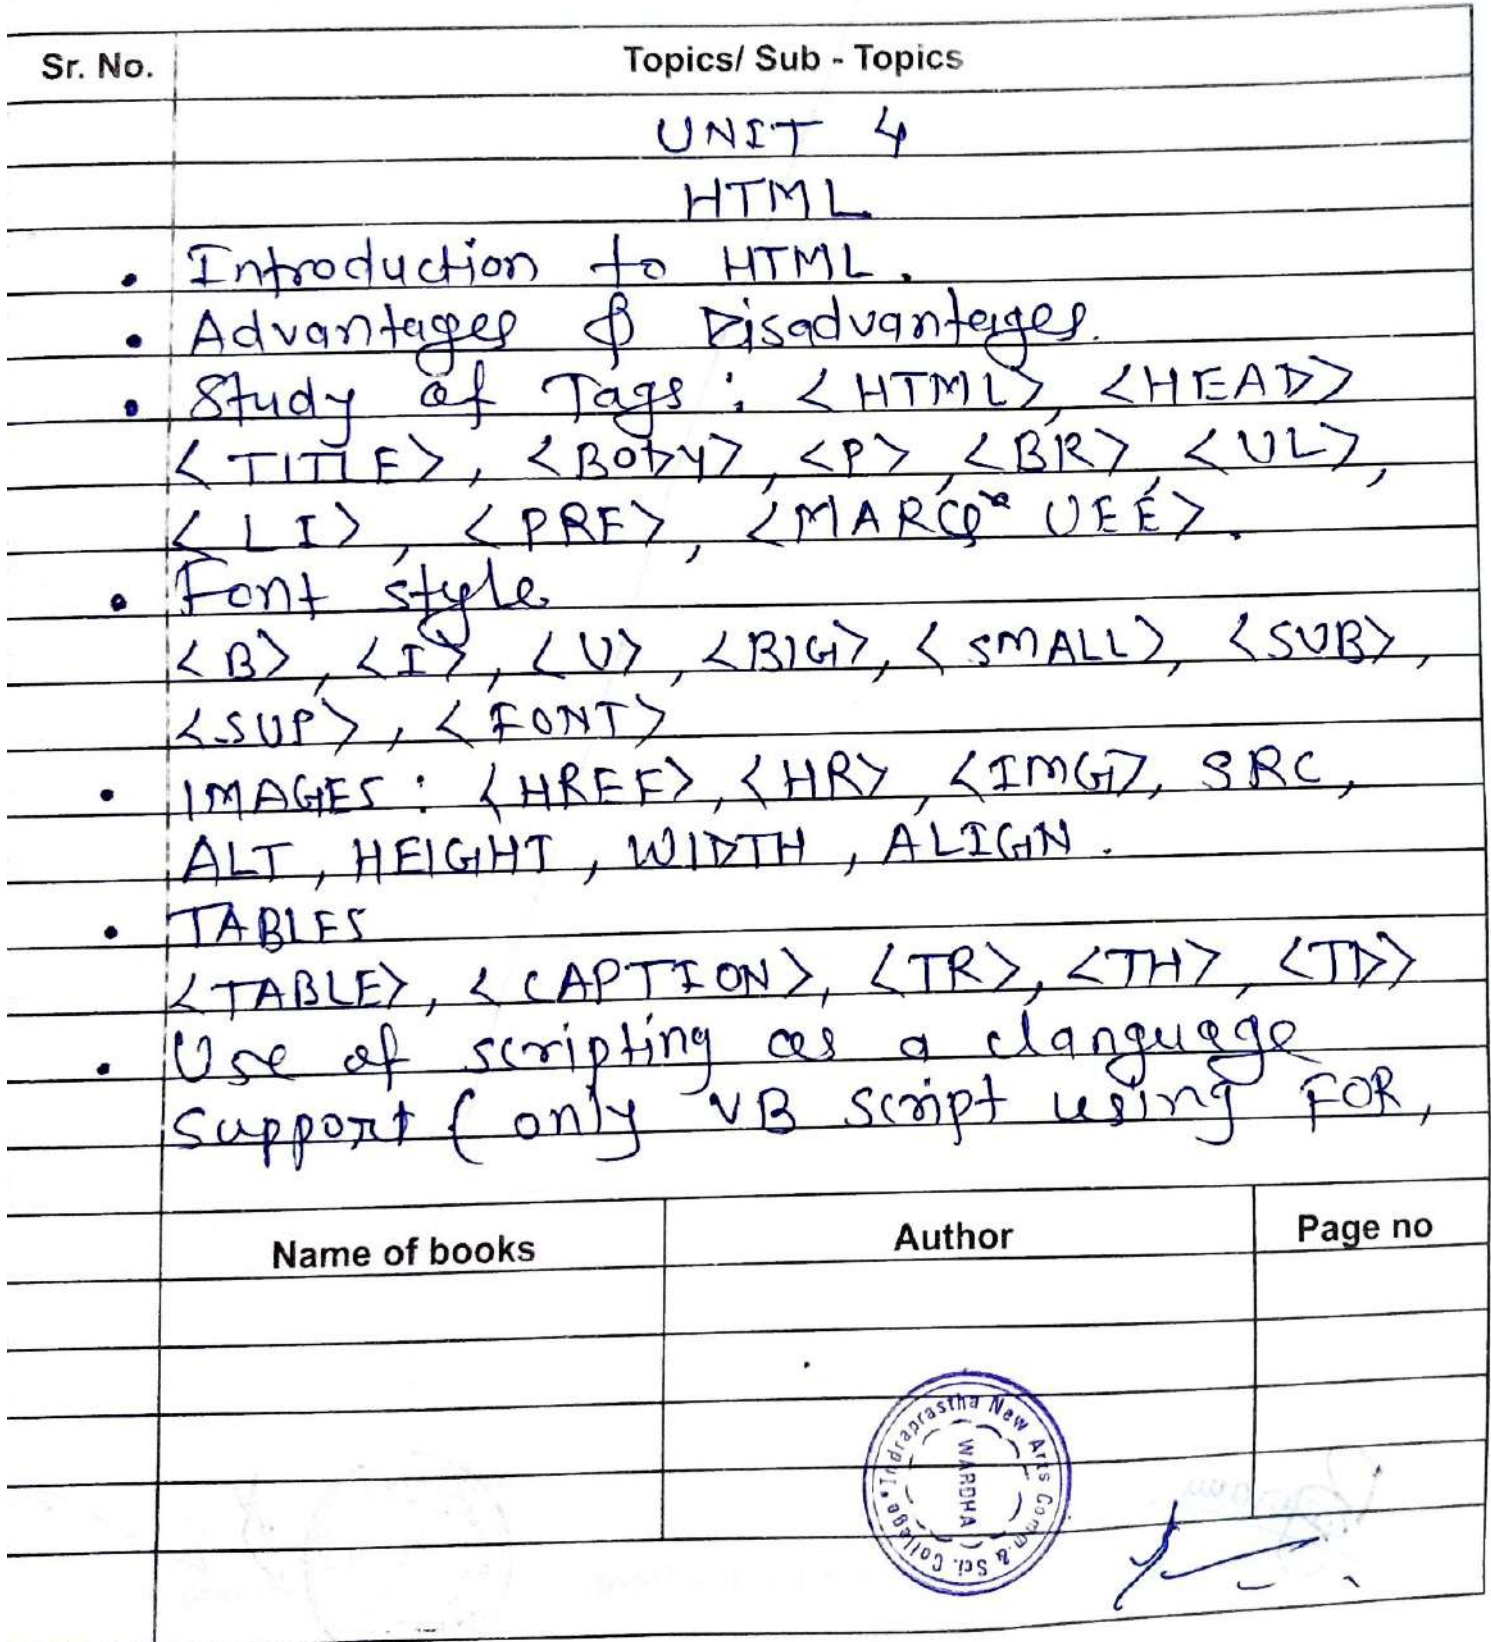 Sr. No. Topics/ Sub - Topics
UNIT 4
HTML
• Introduction to HTML.
• Advantages & Disadvantages.
• Study of Tags : <HTML>, <HEAD>
<TITLE>, <BODY>, <P>, <BR>, <UL>,
<LI>, <PRE>, <MARQUEE>.
• Font style
<B>, <I>, <U>, <BIG>, <SMALL>, <SUB>,
<SUP>, <FONT>
• IMAGES : <HREF>, <HR>, <IMG>, SRC,
ALT, HEIGHT, WIDTH, ALIGN.
• TABLES
<TABLE>, <CAPTION>, <TR>, <TH>, <TD>
• Use of scripting as a language
Support ( only VB script using FOR,
Name of books Author Page no
Indraprastha New Arts Comm. & Sci. College
WARDHA